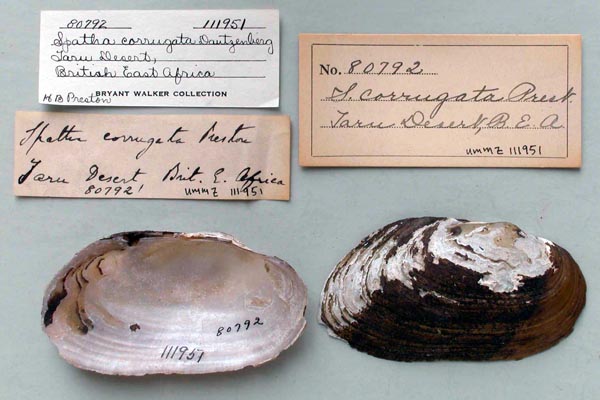 80792 111951
Spatha corrugata Dautzenberg
Taru Desert,
British East Africa
H B Preston BRYANT WALKER COLLECTION
No. 80792
S. corrugata Prest.
Taru Desert, B. E. A
ummz 111951
Spatha corrugata Preston
Taru Desert Brit. E. Africa
80792! ummz 111951
80792
111951